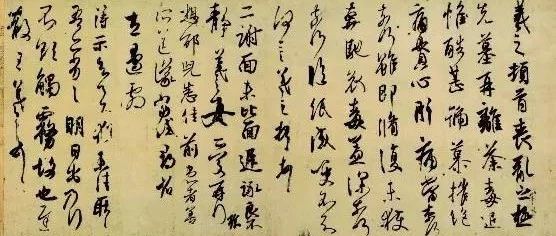 羲之頓首喪亂之極
先墓再離荼毒追
惟酷甚號慕摧絕
痛貫心肝痛當奈何
奈何雖即脩復未獲
奔馳哀毒益深奈何
奈何臨紙感哽不知
何言羲之頓首頓首
二謝面未比面遲詠
靜羲之女愛再拜
想邵兒悉佳前患者善
所送議當試尋
左邊劇
得示知足下猶未佳耿耿
吾亦劣劣明日出乃行
不欲觸霧故也遲
散王羲之頓首